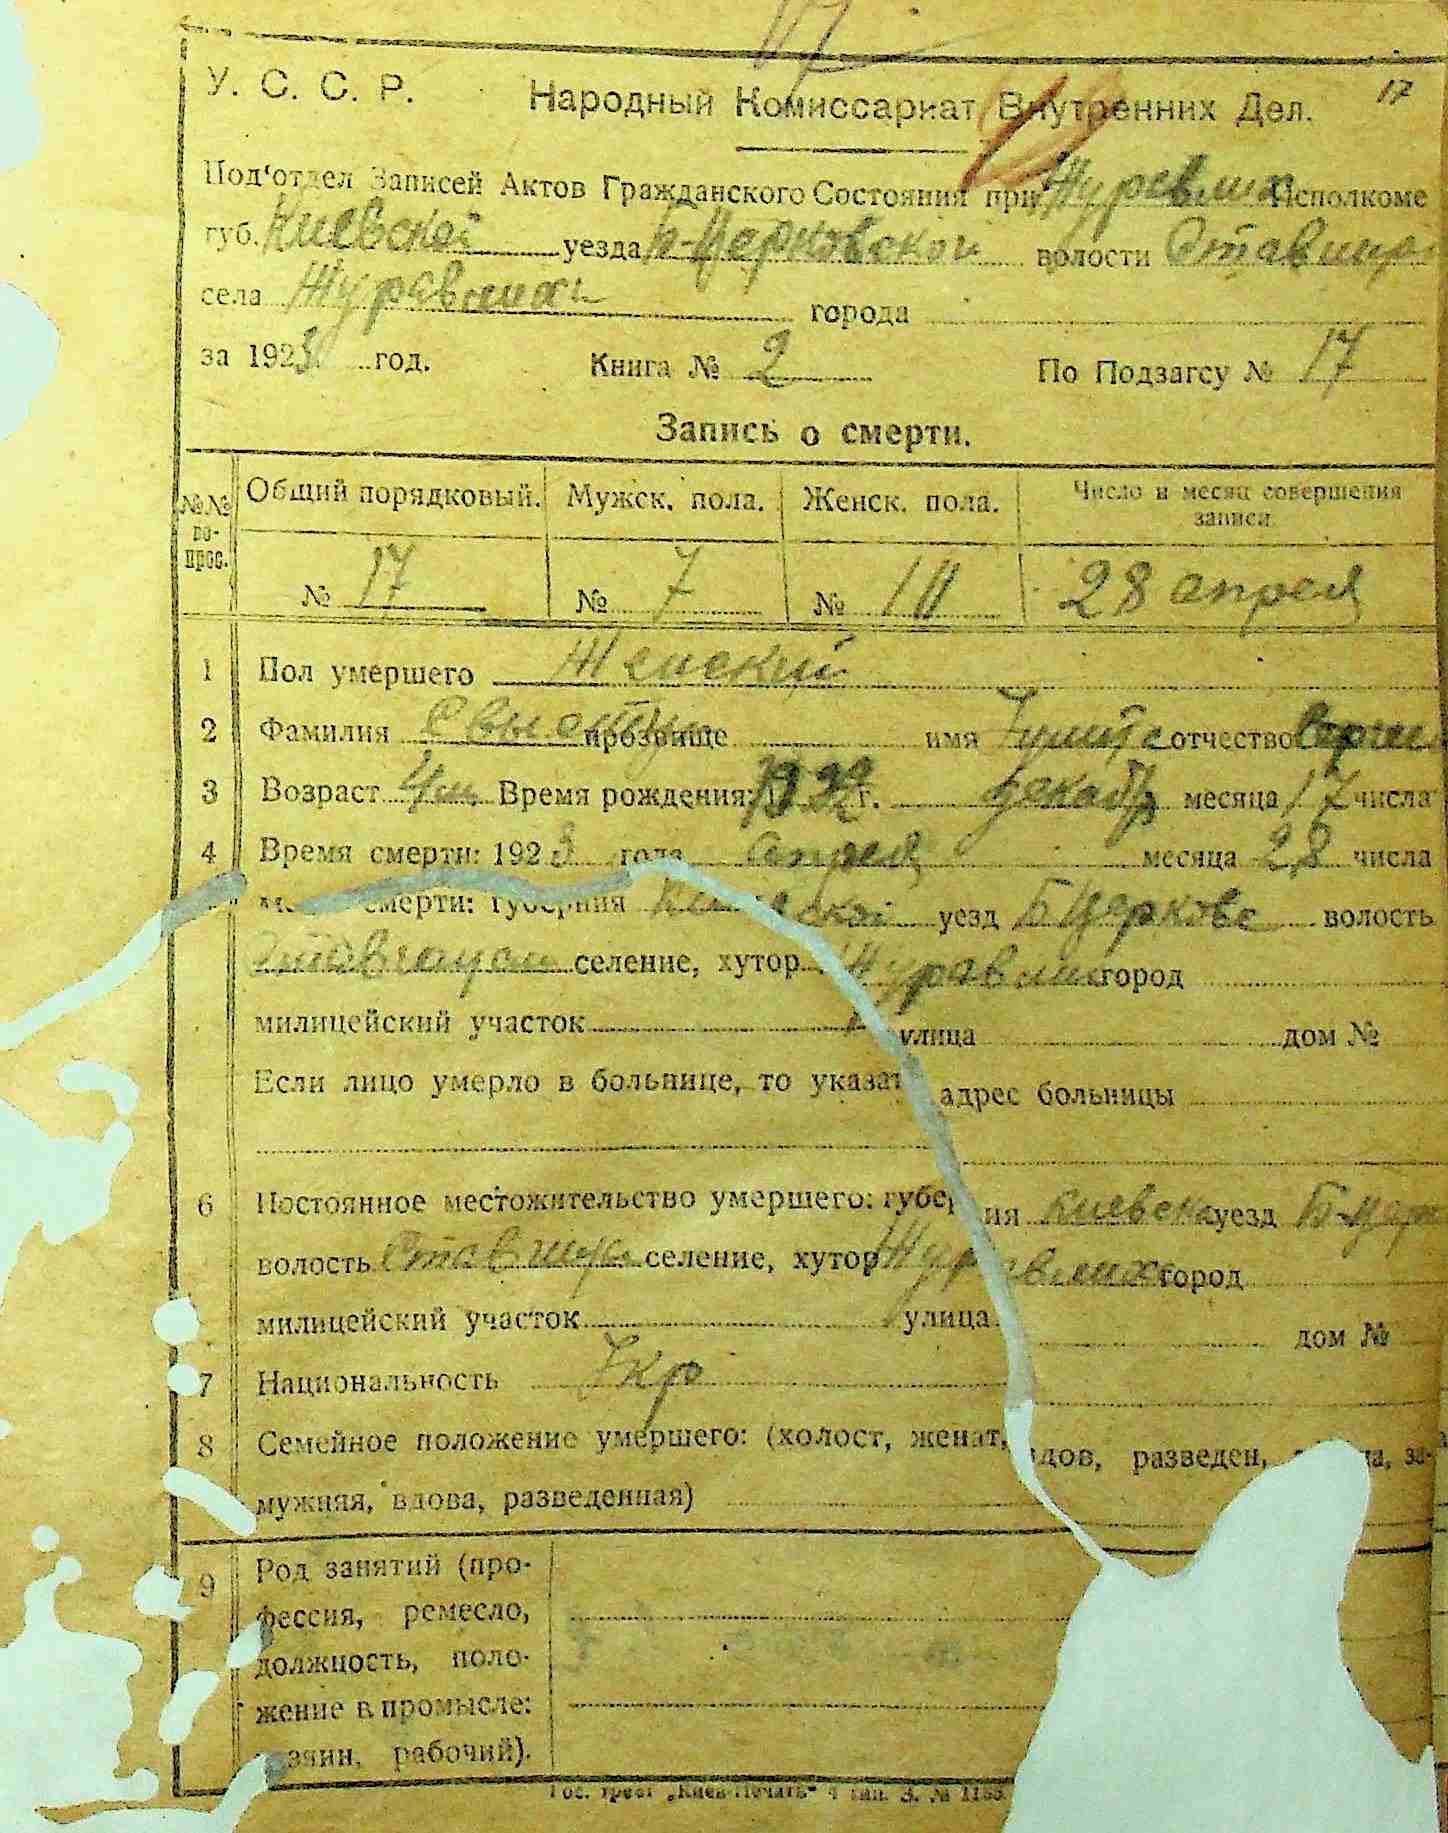 17
У. С. С. Р. Народный Комиссариат Внутренних Дел.
Под'отдел Записей Актов Гражданского Состояния при Журавлих Исполкоме
губ. Киевской уезда Б-Церковской волости
села Журавлиха города
за 1923 год. Книга № 2 По Подзагсу № 17
Запись о смерти.
№№ вопрос. Общий порядковый. Мужск. пола. Женск. пола. Число и месяц совершения записи
№ 17 № 7 № 10 28 апреля
1 Пол умершего Женский
2 Фамилия прозвище имя отчество
3 Возраст 4 м Время рождения: 1922 г. декабр месяца 17 числа
4 Время смерти: 1923 года апреля месяца 28 числа
смерти: губерния Киевской уезд Б Церкове волость
селение, хутор Журавлих город
милицейский участок улица дом №
Если лицо умерло в больнице, то указат адрес больницы
6 Постоянное местожительство умершего: губерния Киевска уезд Б-Церк
волость селение, хутор Журавлиха город
милицейский участок улица дом №
7 Национальность Укр
8 Семейное положение умершего: (холост, женат, вдов, разведен, за-
мужняя, вдова, разведенная)
9 Род занятий (про-
фессия, ремесло,
должность, поло-
жение в промысле:
рабочий).
Гос. трест „Киев-Печать“ 4 тип. З. №